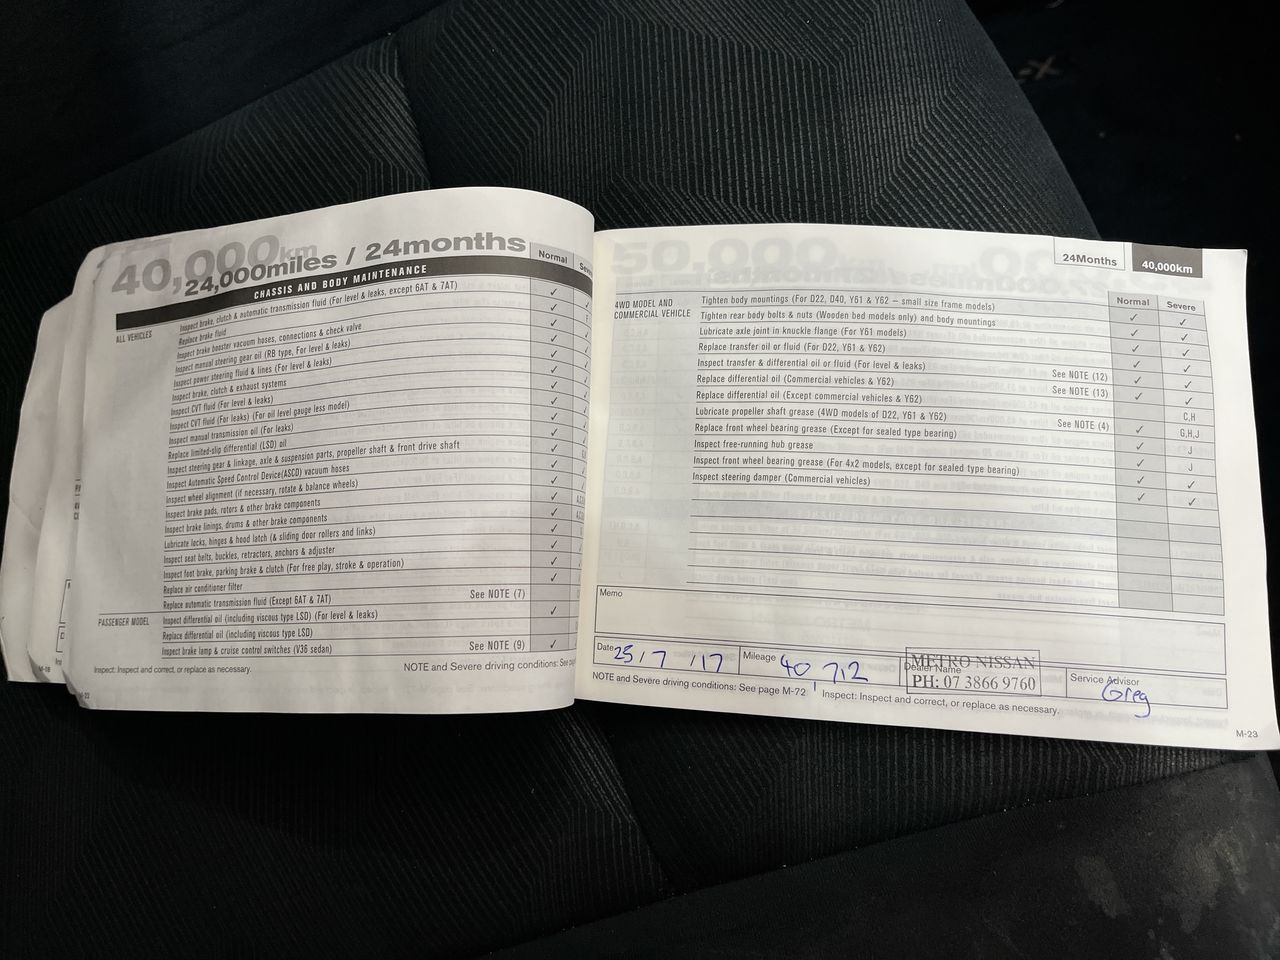 40,000km
24,000miles / 24months
Normal
CHASSIS AND BODY MAINTENANCE
ALL VEHICLES
Inspect brake, clutch & automatic transmission fluid (For level & leaks, except 6AT & 7AT)
Replace brake fluid
Inspect brake booster vacuum hoses, connections & check valve
Inspect manual steering gear oil (RB type, For level & leaks)
Inspect power steering fluid & lines (For level & leaks)
Inspect brake, clutch & exhaust systems
Inspect CVT fluid (For level & leaks)
Inspect CVT fluid (For leaks) (For oil level gauge less model)
Inspect manual transmission oil (For leaks)
Replace limited-slip differential (LSD) oil
Inspect steering gear & linkage, axle & suspension parts, propeller shaft & front drive shaft
Inspect Automatic Speed Control Device(ASCD) vacuum hoses
Inspect wheel alignment (if necessary, rotate & balance wheels)
Inspect brake pads, rotors & other brake components
Inspect brake linings, drums & other brake components
Lubricate locks, hinges & hood latch (& sliding door rollers and links)
Inspect seat belts, buckles, retractors, anchors & adjuster
Inspect foot brake, parking brake & clutch (For free play, stroke & operation)
Replace air conditioner filter
Replace automatic transmission fluid (Except 6AT & 7AT) See NOTE (7)
PASSENGER MODEL
Inspect differential oil (including viscous type LSD) (For level & leaks)
Replace differential oil (including viscous type LSD)
Inspect brake lamp & cruise control switches (V36 sedan) See NOTE (9)
Inspect: Inspect and correct, or replace as necessary.
NOTE and Severe driving conditions: See
24Months
40,000km
Normal Severe
4WD MODEL AND
COMMERCIAL VEHICLE
Tighten body mountings (For D22, D40, Y61 & Y62 – small size frame models)
Tighten rear body bolts & nuts (Wooden bed models only) and body mountings
Lubricate axle joint in knuckle flange (For Y61 models)
Replace transfer oil or fluid (For D22, Y61 & Y62)
Inspect transfer & differential oil or fluid (For level & leaks)
Replace differential oil (Commercial vehicles & Y62) See NOTE (12)
Replace differential oil (Except commercial vehicles & Y62) See NOTE (13)
Lubricate propeller shaft grease (4WD models of D22, Y61 & Y62) C,H
Replace front wheel bearing grease (Except for sealed type bearing) See NOTE (4) G,H,J
Inspect free-running hub grease J
Inspect front wheel bearing grease (For 4x2 models, except for sealed type bearing) J
Inspect steering damper (Commercial vehicles)
Memo
Date 25/7/17
Mileage 40 712
Dealer Name
METRO NISSAN
PH: 07 3866 9760
Service Advisor
Greg
NOTE and Severe driving conditions: See page M-72
Inspect: Inspect and correct, or replace as necessary.
M-23